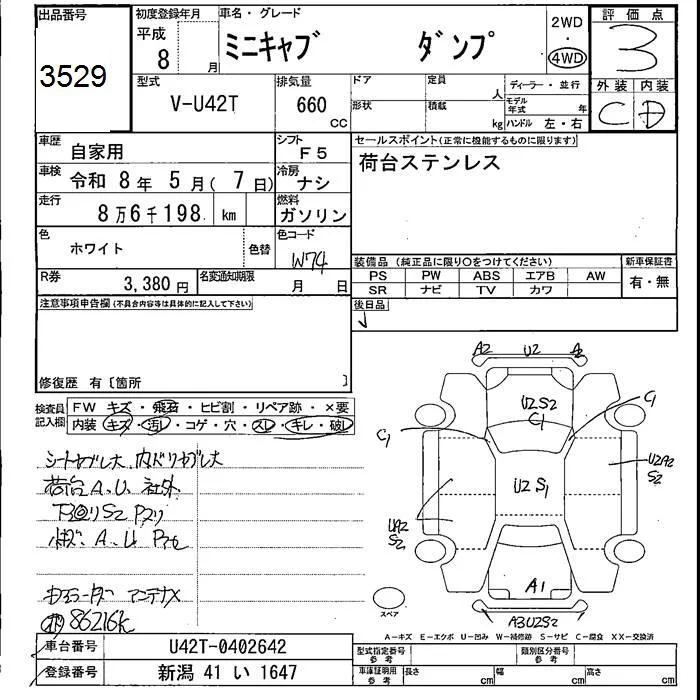 出品番号
3529
初度登録年月
平成
8 月
車名・グレード
ミニキャブ ダンプ
2WD
・
4WD
評価点
3
外装 内装
C D
型式
V-U42T
排気量
660
CC
ドア
形状
定員
人
積載
kg
ディーラー・並行
モデル年式 年
ハンドル 左・右
車歴
自家用
シフト
F5
車検
令和 8年 5月(7日)
冷房
ナシ
走行
8万6千198 km
燃料
ガソリン
色
ホワイト
色替
色コード
W74
R券
3,380円
名変通知期限
月 日
セールスポイント(正常に機能するものに限ります)
荷台ステンレス
装備品(純正品に限り○をつけてください)
PS PW ABS エアB AW
SR ナビ TV カワ
新車保証書
有・無
後日品
注意事項申告欄(不具合内容等は具体的に記入して下さい)
修復歴 有〔箇所 〕
検査員記入欄
FW キズ・飛石・ヒビ割・リペア跡・×要
内装 キズ・汚レ・コゲ・穴・スレ・キレ・破レ
シートヤブレ大 内バリヤブレ大
荷台A、U、社外
下回りS2 Pヌリ
小キズ、A、U
アンテナX
86216k
A2 U2 A2
U2S2
C1
C1
C1
U2S1
U2A2
S2
UA2
S2
A1
A3U2S2
スペア
A-キズ E-エクボ U-凹み W-補修跡 S-サビ C-腐食 XX-交換済
車台番号
U42T-0402642
登録番号
新潟 41 い 1647
型式指定番号
参考
類別区分番号
参考
車庫証明用
参考
長さ cm
幅 cm
高さ cm